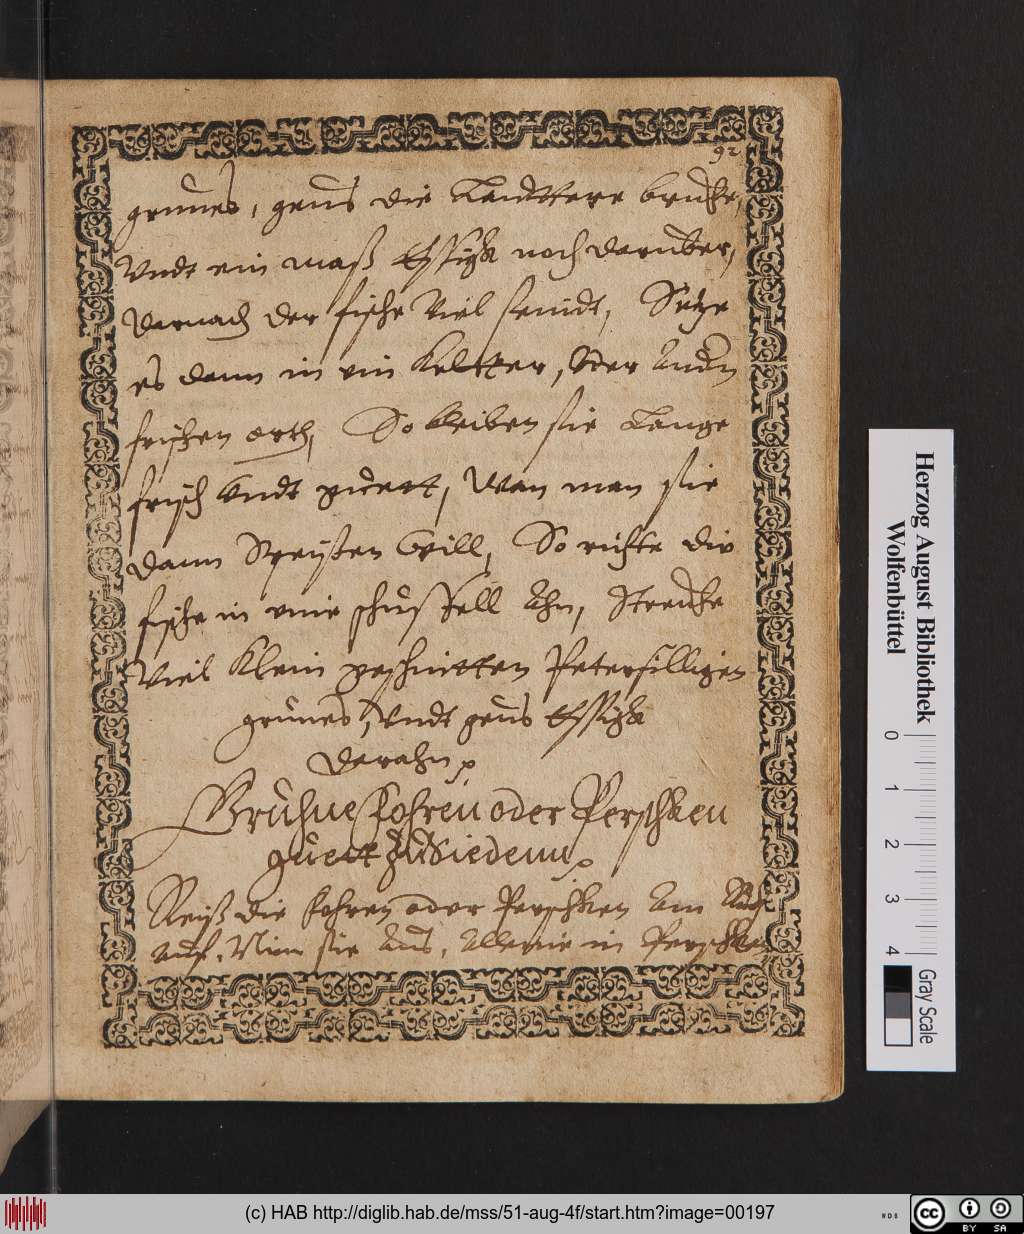 92
grunes, geus die Lautttere bruhe,
Undt ein maß Essigk noch daruber,
darnach der fische Viel seindt, Setze
es dann in ein Keltter, Oder Andn
frischen orth, So bleiben sie Lange
frisch Undt guett, Wan man sie
dann Speyßen Will, So richte die
fische in eine schußsell Ahn, Streuhe
Viel Klein geschnitten Petersilligen
grunes, Undt geus Essigk
darahn
Gruhne fohren oder Perschken
guett zu Siedenn
Reiß die fohren oder Perschken Am
auf, Nim sie Aus, Alleine in Perschken
Herzog August Bibliothek
Wolfenbüttel
0 1 2 3 4
Gray Scale
(c) HAB http://diglib.hab.de/mss/51-aug-4f/start.htm?image=00197
WDB
cc BY SA